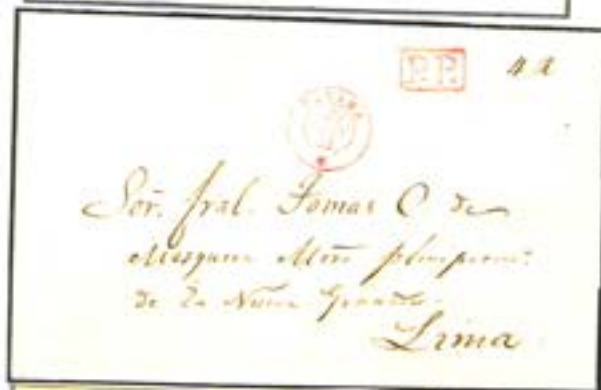 P.P. 4 2
Sor. Gral. Tomas C de
Mosquera Mtro plenipoten:
de La Nueva Granada.
Lima